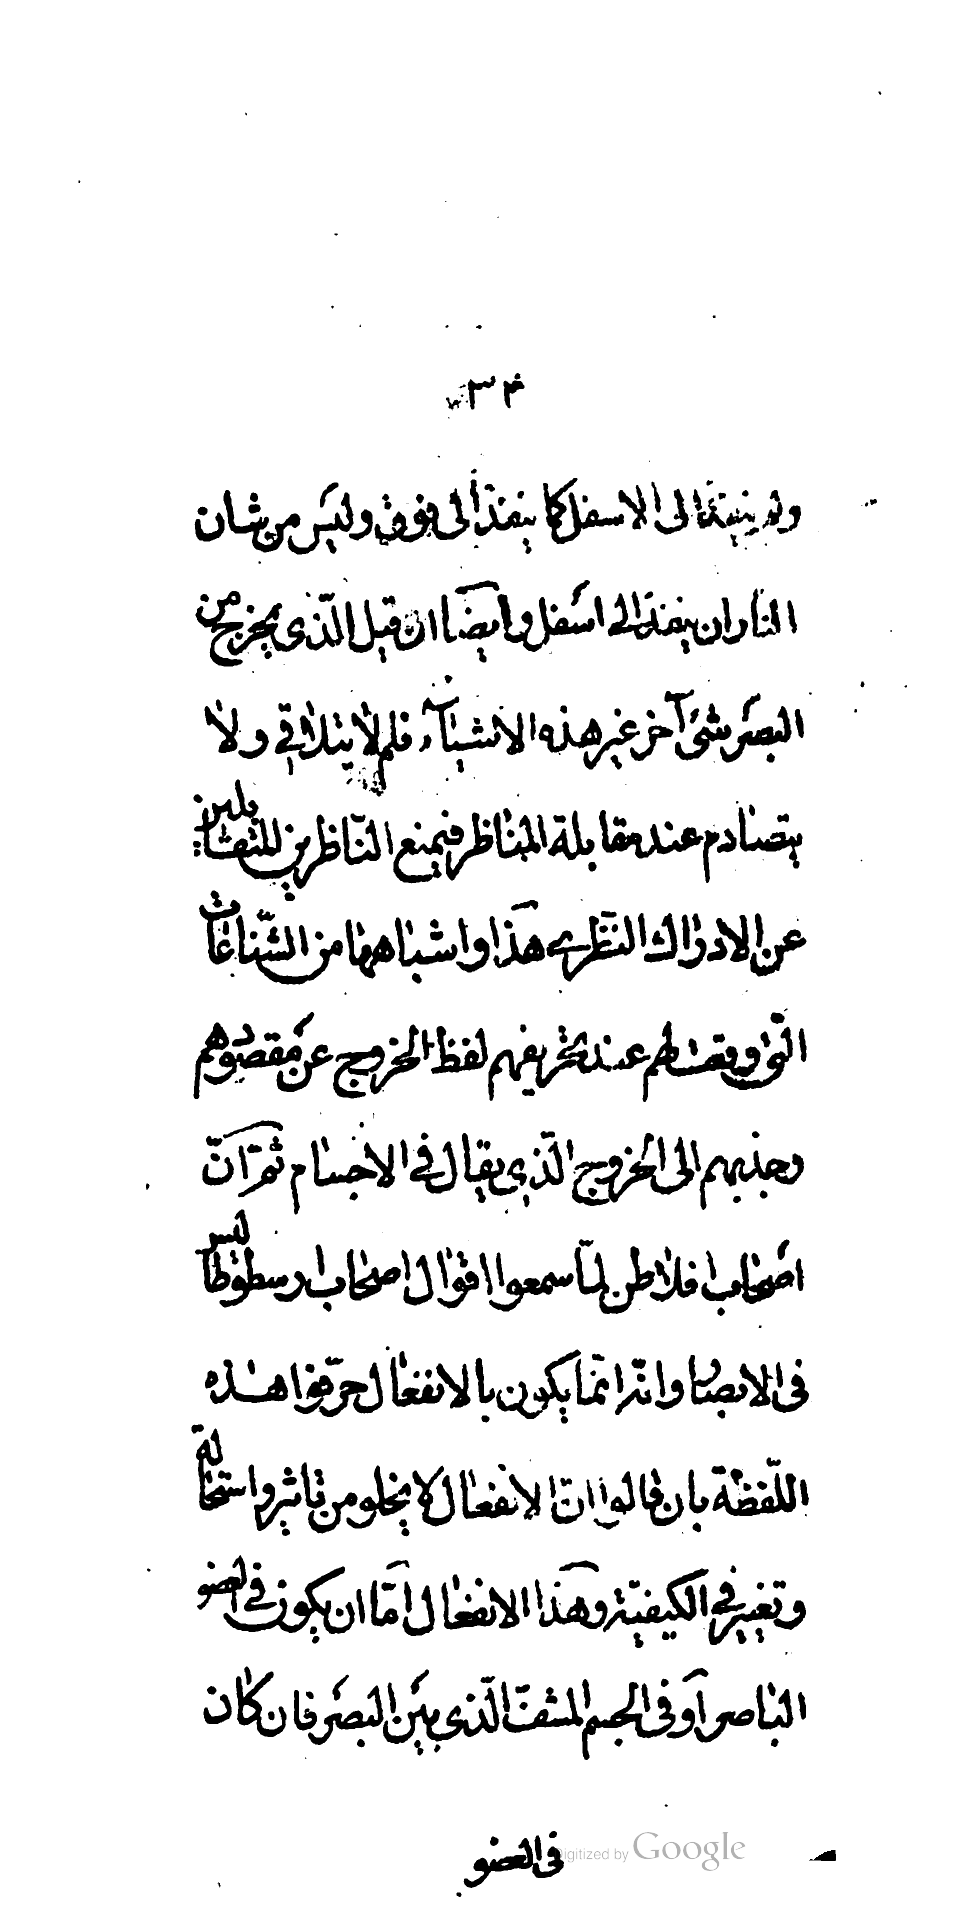 ٣٤
ولم ينفذ الى الاسفل كما ينفذ الى فوق وليس من شان
النار ان ينفذ الى اسفل وايضًا ان قيل الّذى يخرج من
البصر شئ آخر غير هذه الاشيآء فلم لا يتلاقى ولا
يتصادم عند مقابلة المناظر فيمنع النّاظرين المتقابلين
عن الادراك النّظرى هذا واشباهها من الشّناعات
الّتى وقعت لهم عند تحريفهم لفظ الخروج عن مقصودهم
وجذبهم الى الخروج الّذى يقال فى الاجسام ثمّ انّ
اصحاب افلاطن لمّا سمعوا اقوال اصحاب ارسطوطاليس
فى الابصار وانّه انّما يكون بالانفعال حرّفوا هذه
اللّفظة بان قالوا انّ الانفعال لا يخلو من تاثير واستحالة
وتغيير فى الكيفيّة وهذا الانفعال امّا ان يكون فى العضو
الباصر او فى الجسم المشفّ الّذى بين البصر فان كان
فى العضو
Digitized by Google